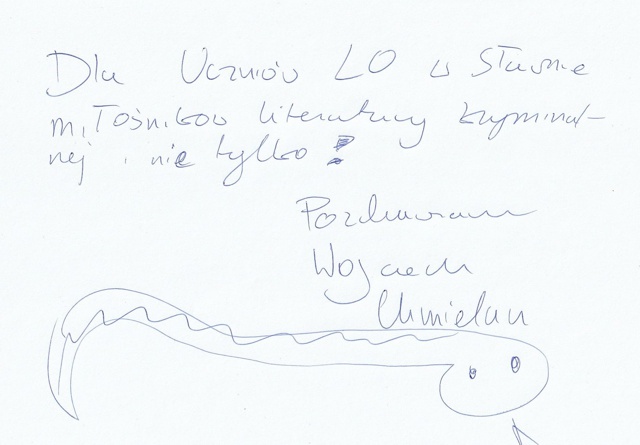 Dla Uczniów LO w Sławnie
miłośników literatury kryminal-
nej i nie tylko!
Pozdrawiam
Wojciech
Chmielarz